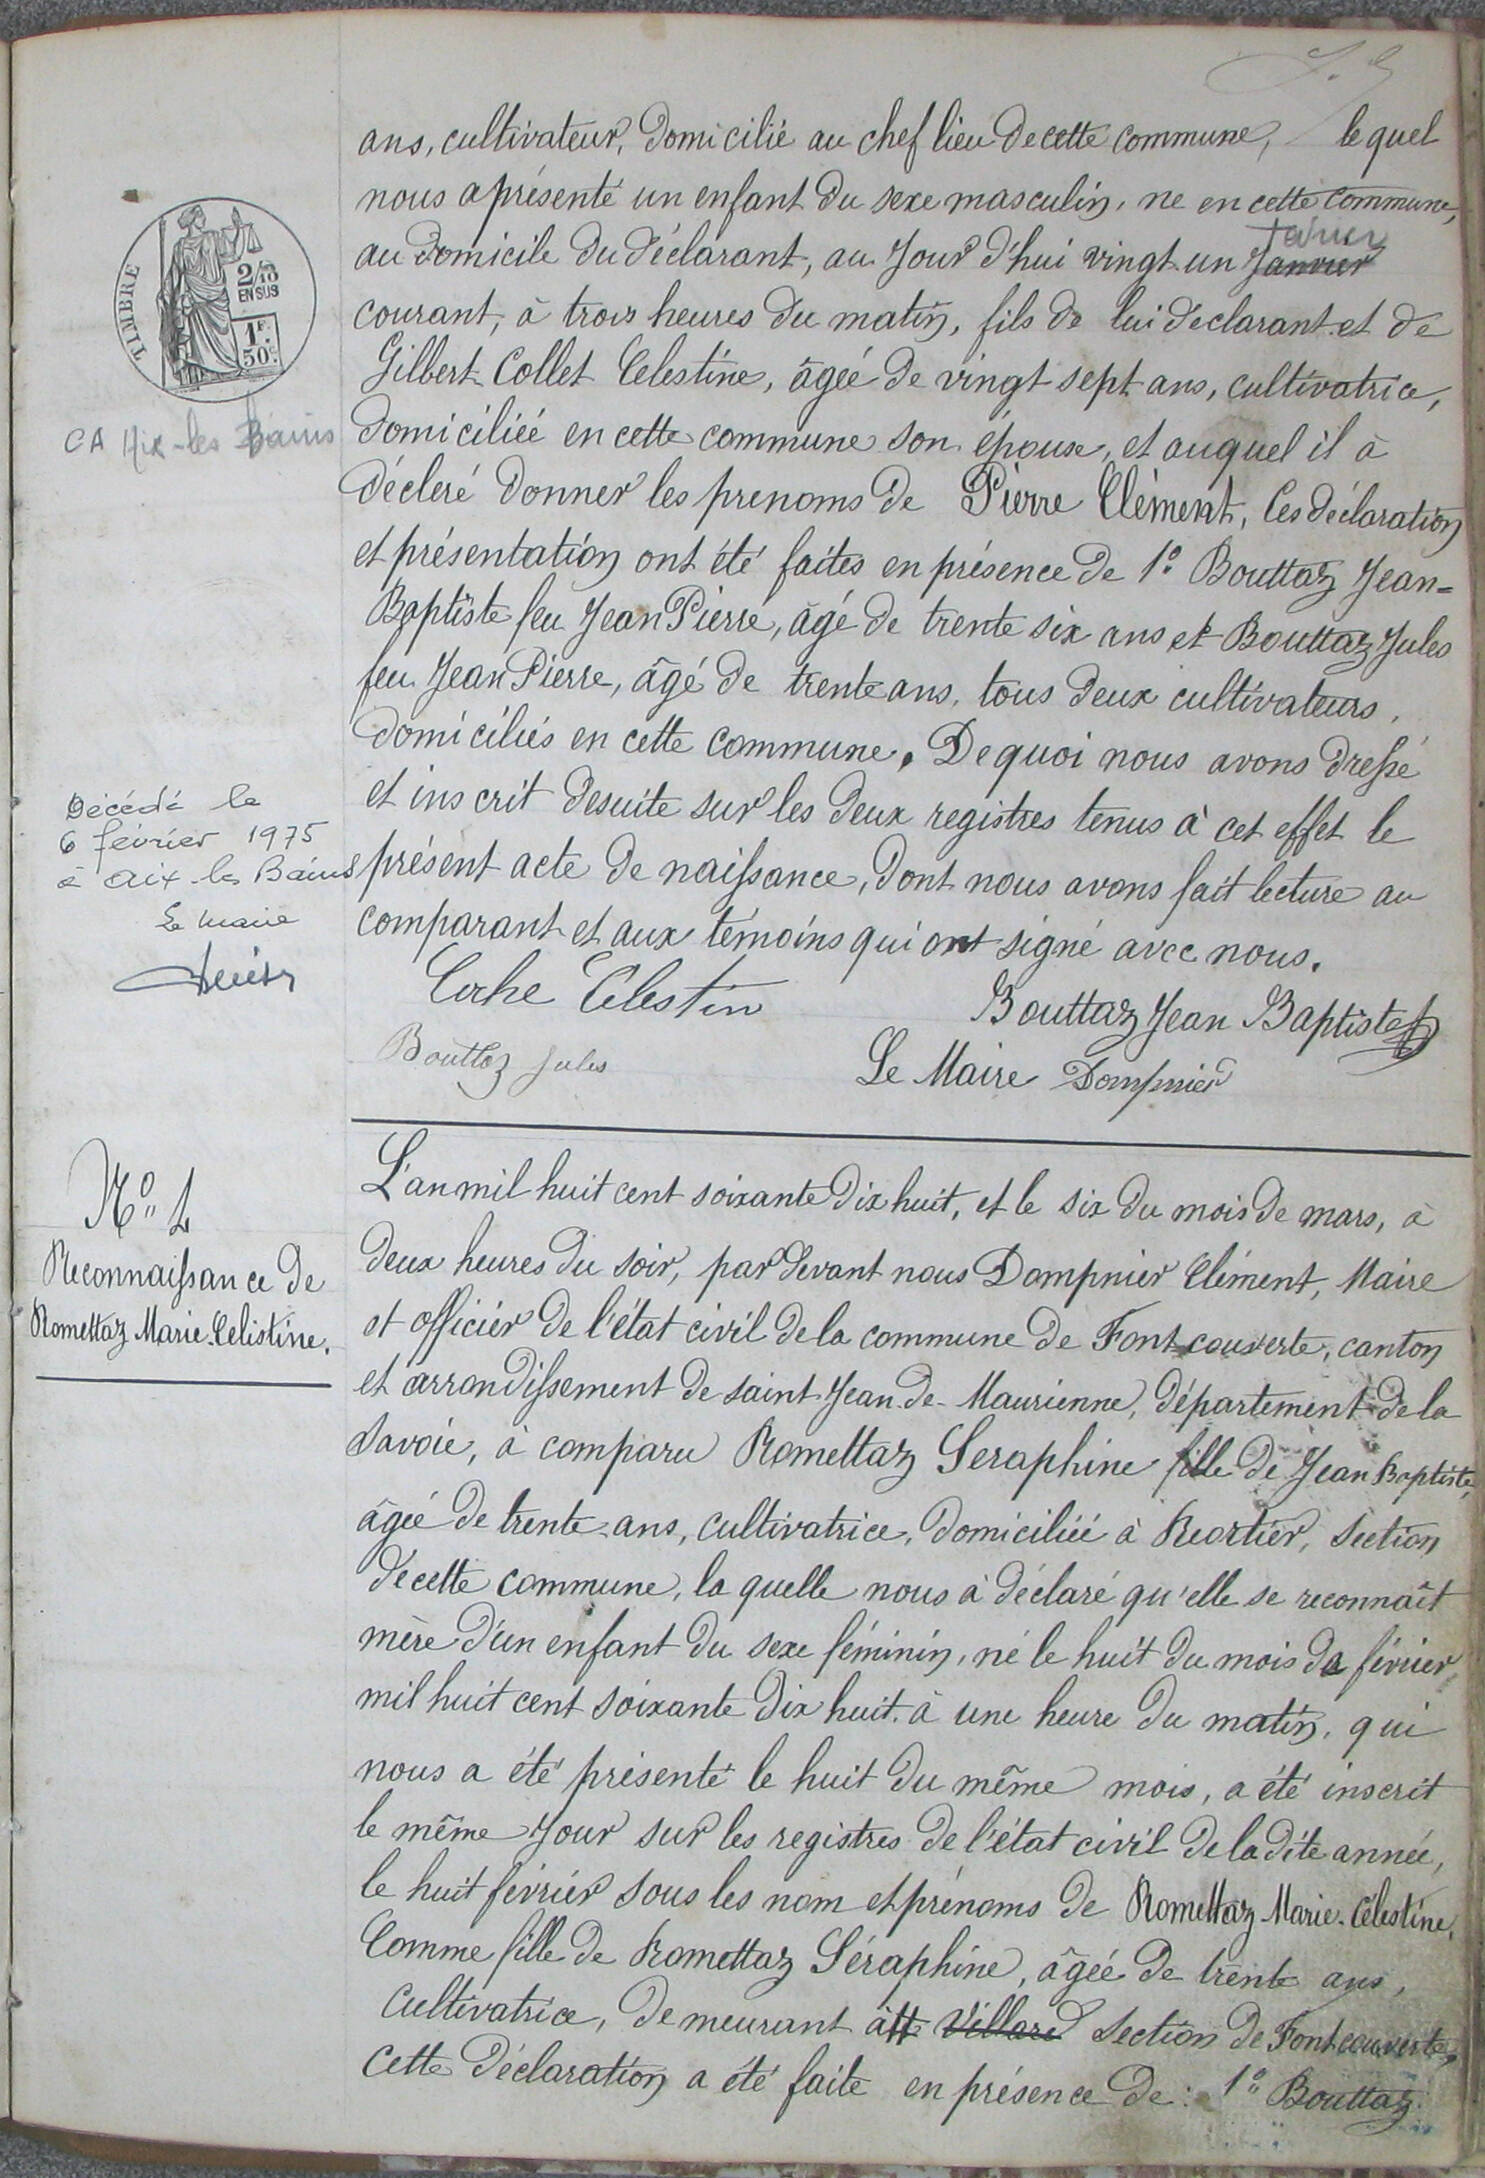 ans, cultivateur, domicilié au chef lieu de cette commune, le quel
nous a présenté un enfant du sexe masculin, ne en cette commune,
au domicile du déclarant, au Jour d'hui vingt un Janvier
courant, à trois heures du matin, fils de lui déclarant et de
Gilbert Collet Celestine, âgée de vingt sept ans, cultivatrice,
domiciliée en cette commune son épouse, et auquel il à
décleré donner les prenoms de Pierre Clément, Ces déclaration
et présentation ont été faites en présence de 1° Bouttaz Jean-
Baptiste feu Jean Pierre, âgé de trente six ans et Bouttaz Jules
feu Jean Pierre, âgé de trente ans, tous deux cultivateurs,
domiciliés en cette commune. De quoi nous avons dressé
et inscrit desuite sur les deux registres tenus à cet effet le
présent acte de naissance, dont nous avons fait lecture au
comparant et aux témoins qui ont signé avec nous.
Coche Célestin
Bouttaz Jean Baptiste
Bouttaz Jules
Le Maire Dompnier
TIMBRE
2/10
EN SUS
1F.
50c.
CA Aix-les Bains
Décédé le
6 février 1975
à Aix les Bains
Le maire
N° 1
Reconnaissance de
Romettaz Marie Celistine.
L'an mil huit cent soixante dix huit, et le six du mois de mars, à
deux heures du soir, par devant nous Dompnier Clément, Maire
et officier de l'état civil de la commune de Fontcouverte, canton
et arrondissement de saint Jean-de-Maurienne, département de la
Savoie, à comparu Romettaz Seraphine fille de Jean Baptiste,
âgée de trente ans, cultivatrice, domiciliée à Reortier, section
de cette commune, la quelle nous à déclaré qu'elle se reconnaît
mère d'un enfant du sexe féminin, né le huit du mois de février
mil huit cent soixante dix huit à une heure du matin, qui
nous a été présenté le huit du même mois, a été inscrit
le même Jour sur les registres de l'état civil de la dite année,
le huit février sous les nom et prénoms de Romettaz Marie-Célestine,
Comme fille de Romettaz Séraphine, âgée de trente ans,
Cultivatrice, demeurant à Villard section de Fontcouverte,
Cette déclaration a été faite en présence de : 1° Bouttaz